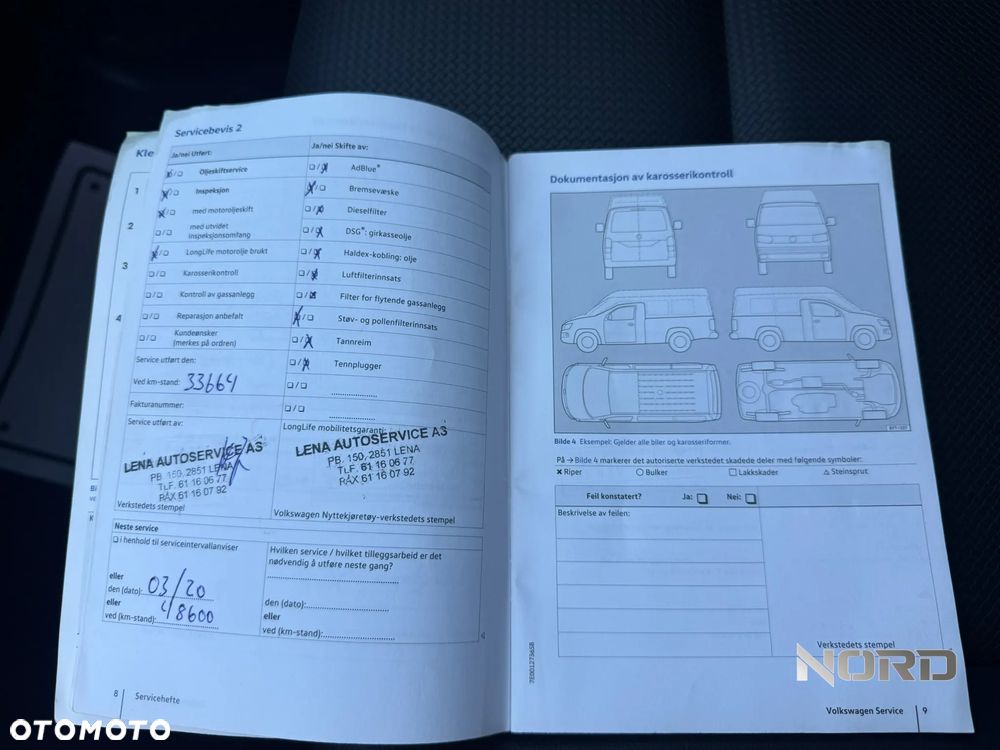 Kle
1
2
3
4
Servicebevis 2
Ja/nei Utført:
Ja/nei Skifte av:
Oljeskiftservice
AdBlue®
Inspeksjon
Bremsevæske
med motoroljeskift
Dieselfilter
med utvidet
inspeksjonsomfang
DSG®: girkasseolje
LongLife motorolje brukt
Haldex-kobling: olje
Karosserikontroll
Luftfilterinnsats
Kontroll av gassanlegg
Filter for flytende gassanlegg
Reparasjon anbefalt
Støv- og pollenfilterinnsats
Kundeønsker
(merkes på ordren)
Tannreim
Service utført den:
Tennplugger
Ved km-stand: 33664
Fakturanummer:
Service utført av:
LongLife mobilitetsgaranti:
LENA AUTOSERVICE AS
PB. 150, 2851 LENA
TLF. 61 16 06 77
FAX 61 16 07 92
LENA AUTOSERVICE AS
PB. 150, 2851 LENA
TLF. 61 16 06 77
FAX 61 16 07 92
Verkstedets stempel
Volkswagen Nyttekjøretøy-verkstedets stempel
Neste service
i henhold til serviceintervallanviser
Hvilken service / hvilket tilleggsarbeid er det
nødvendig å utføre neste gang?
eller
den (dato): 03/20
eller
ved (km-stand): 48600
den (dato):
eller
ved (km-stand):
8 Servicehefte
Dokumentasjon av karosserikontroll
Bilde 4 Eksempel: Gjelder alle biler og karosseriformer.
På → Bilde 4 markerer det autoriserte verkstedet skadede deler med følgende symboler:
× Riper ○ Bulker □ Lakkskader △ Steinsprut
Feil konstatert? Ja: □ Nei: □
Beskrivelse av feilen:
Verkstedets stempel
Volkswagen Service 9
NORD
OTOMOTO